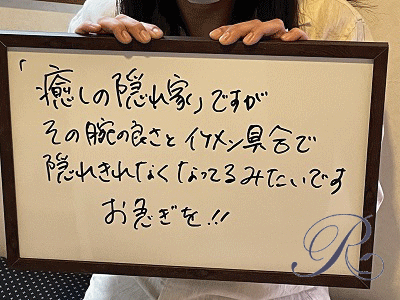 「癒しの隠れ家」ですが
その腕の良さとイケメン具合で
隠れきれなくなってるみたいです
お急ぎを!!
R